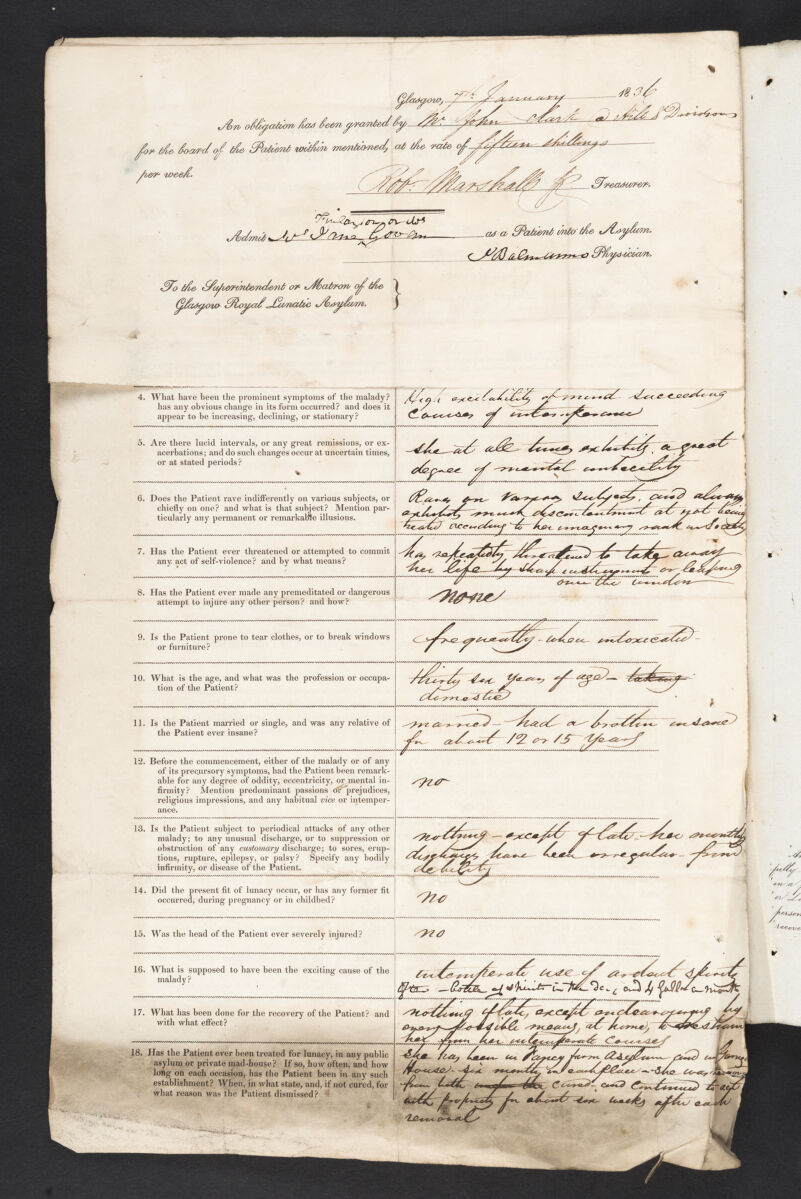 Glasgow, 7th January 1836
An obligation has been granted by Mr. John Clark
for the board of the Patient within mentioned, at the rate of fifteen shillings
per week.
Robt. Marshall Treasurer.
Admit Mrs as a Patient into the Asylum.
Physician.
To the Superintendent or Matron of the
Glasgow Royal Lunatic Asylum.
4. What have been the prominent symptoms of the malady?
has any obvious change in its form occurred? and does it
appear to be increasing, declining, or stationary?
High excitability of mind succeeding
courses of intemperance
5. Are there lucid intervals, or any great remissions, or ex-
acerbations; and do such changes occur at uncertain times,
or at stated periods?
she at all times exhibits a great
degree of mental imbecility
6. Does the Patient rave indifferently on various subjects, or
chiefly on one? and what is that subject? Mention par-
ticularly any permanent or remarkable illusions.
Raves on various subjects, and always
exhibits much discontentment at not being
treated according to her imaginary rank in Society
7. Has the Patient ever threatened or attempted to commit
any act of self-violence? and by what means?
has repeatedly threatened to take away
her life by sharp instruments or leaping
over the window
8. Has the Patient ever made any premeditated or dangerous
attempt to injure any other person? and how?
none
9. Is the Patient prone to tear clothes, or to break windows
or furniture?
frequently - when intoxicated -
10. What is the age, and what was the profession or occupa-
tion of the Patient?
thirty six years of age - taking
domestic
11. Is the Patient married or single, and was any relative of
the Patient ever insane?
married - had a brother insane
for about 12 or 15 years
12. Before the commencement, either of the malady or of any
of its precursory symptoms, had the Patient been remark-
able for any degree of oddity, eccentricity, or mental in-
firmity? Mention predominant passions or prejudices,
religious impressions, and any habitual vice or intemper-
ance.
no
13. Is the Patient subject to periodical attacks of any other
malady; to any unusual discharge, or to suppression or
obstruction of any customary discharge; to sores, erup-
tions, rupture, epilepsy, or palsy? Specify any bodily
infirmity, or disease of the Patient.
nothing - except of late - her monthly
discharges have been irregular - from
debility
14. Did the present fit of lunacy occur, or has any former fit
occurred, during pregnancy or in childbed?
no
15. Was the head of the Patient ever severely injured?
no
16. What is supposed to have been the exciting cause of the
malady?
intemperate use of ardent spirits
often - bottle of spirits in the day, and 4 Galls a month
17. What has been done for the recovery of the Patient? and
with what effect?
nothing of late, except endeavouring by
every possible means, at home, to restrain
her from her intemperate courses
18. Has the Patient ever been treated for lunacy, in any public
asylum or private mad-house? If so, how often, and how
long on each occasion, has the Patient been in any such
establishment? When, in what state, and, if not cured, for
what reason was the Patient dismissed?
she has been in asylum and in
House - six months in each place - she was
from both cured - and continued to act
with propriety for about six weeks after each
removal